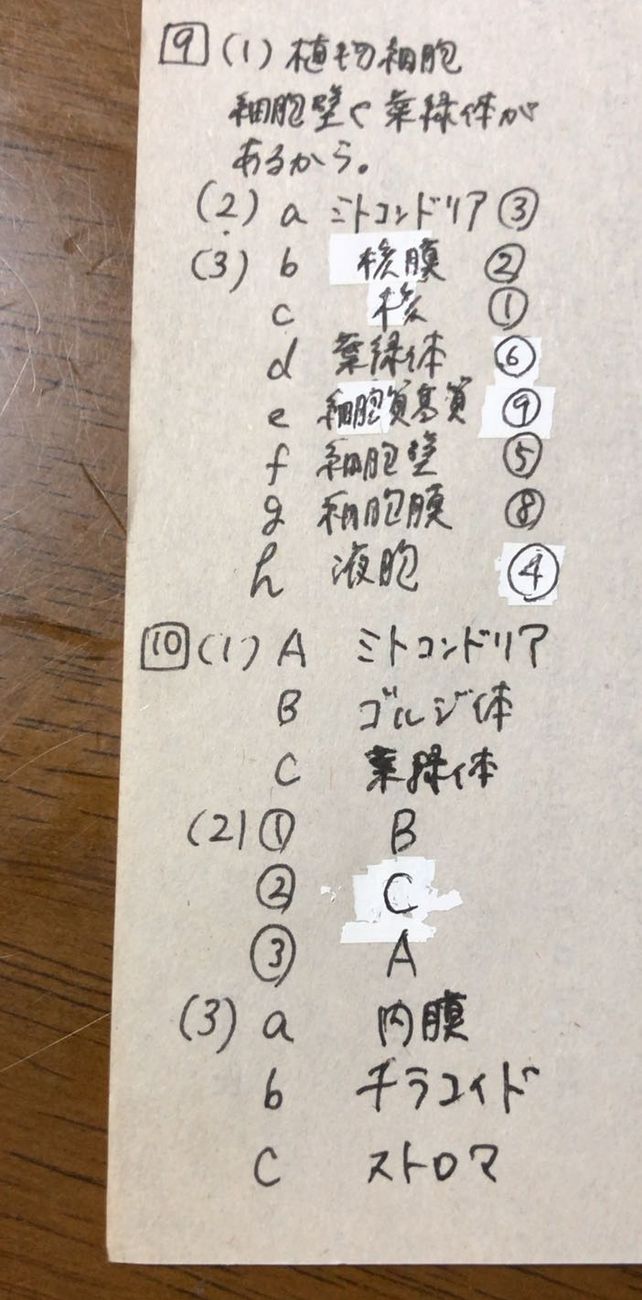 9 (1) 植物細胞
細胞壁や葉緑体が
あるから。
(2) a ミトコンドリア ③
(3) b 核膜 ②
c 核 ①
d 葉緑体 ⑥
e 細胞質基質 ⑨
f 細胞壁 ⑤
g 細胞膜 ⑧
h 液胞 ④
10 (1) A ミトコンドリア
B ゴルジ体
C 葉緑体
(2) ① B
② C
③ A
(3) a 内膜
b チラコイド
C ストロマ